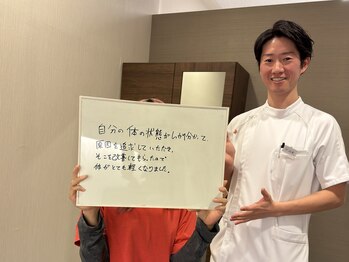 自分の体の状態がしっかり分かって
原因を追求していただき、
そこを改善してもらったので
体がとても軽くなりました。